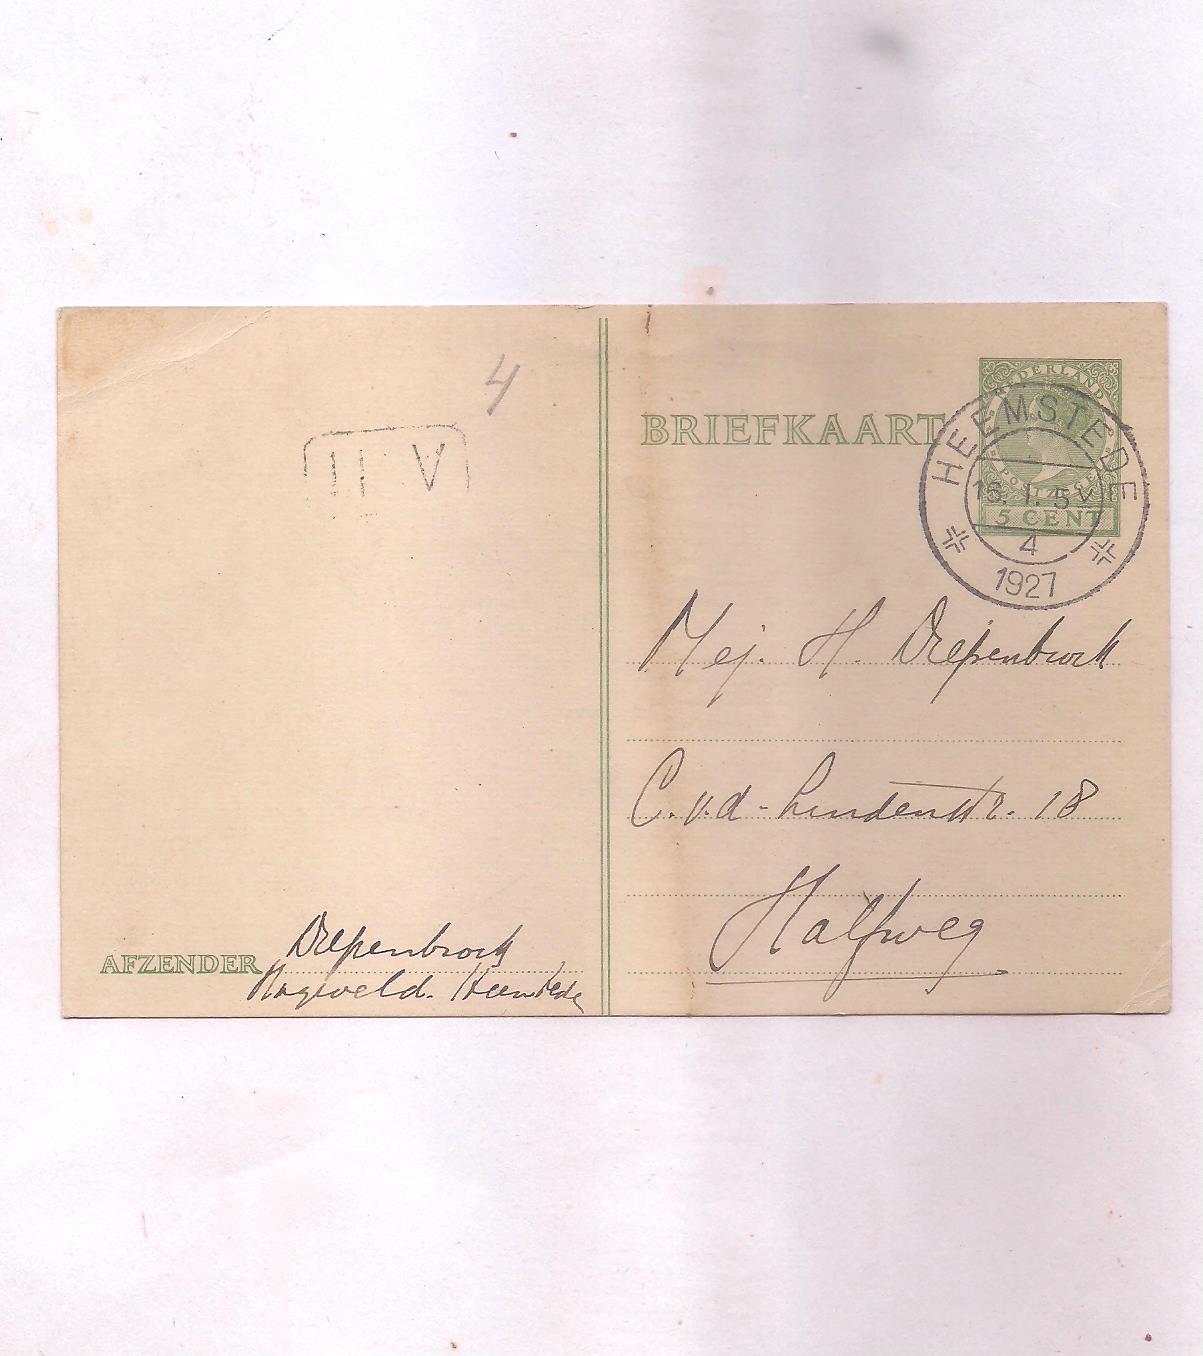 4
II V
AFZENDER Diepenbrock
Hageveld. Heemstede
BRIEFKAART
NEDERLAND
POSTZEGEL
5 CENT
HEEMSTEDE
16. 1. 5 V
4
1927
Mej. H. Diepenbrock
C. v. d - Lindenstr. 18
Halfweg